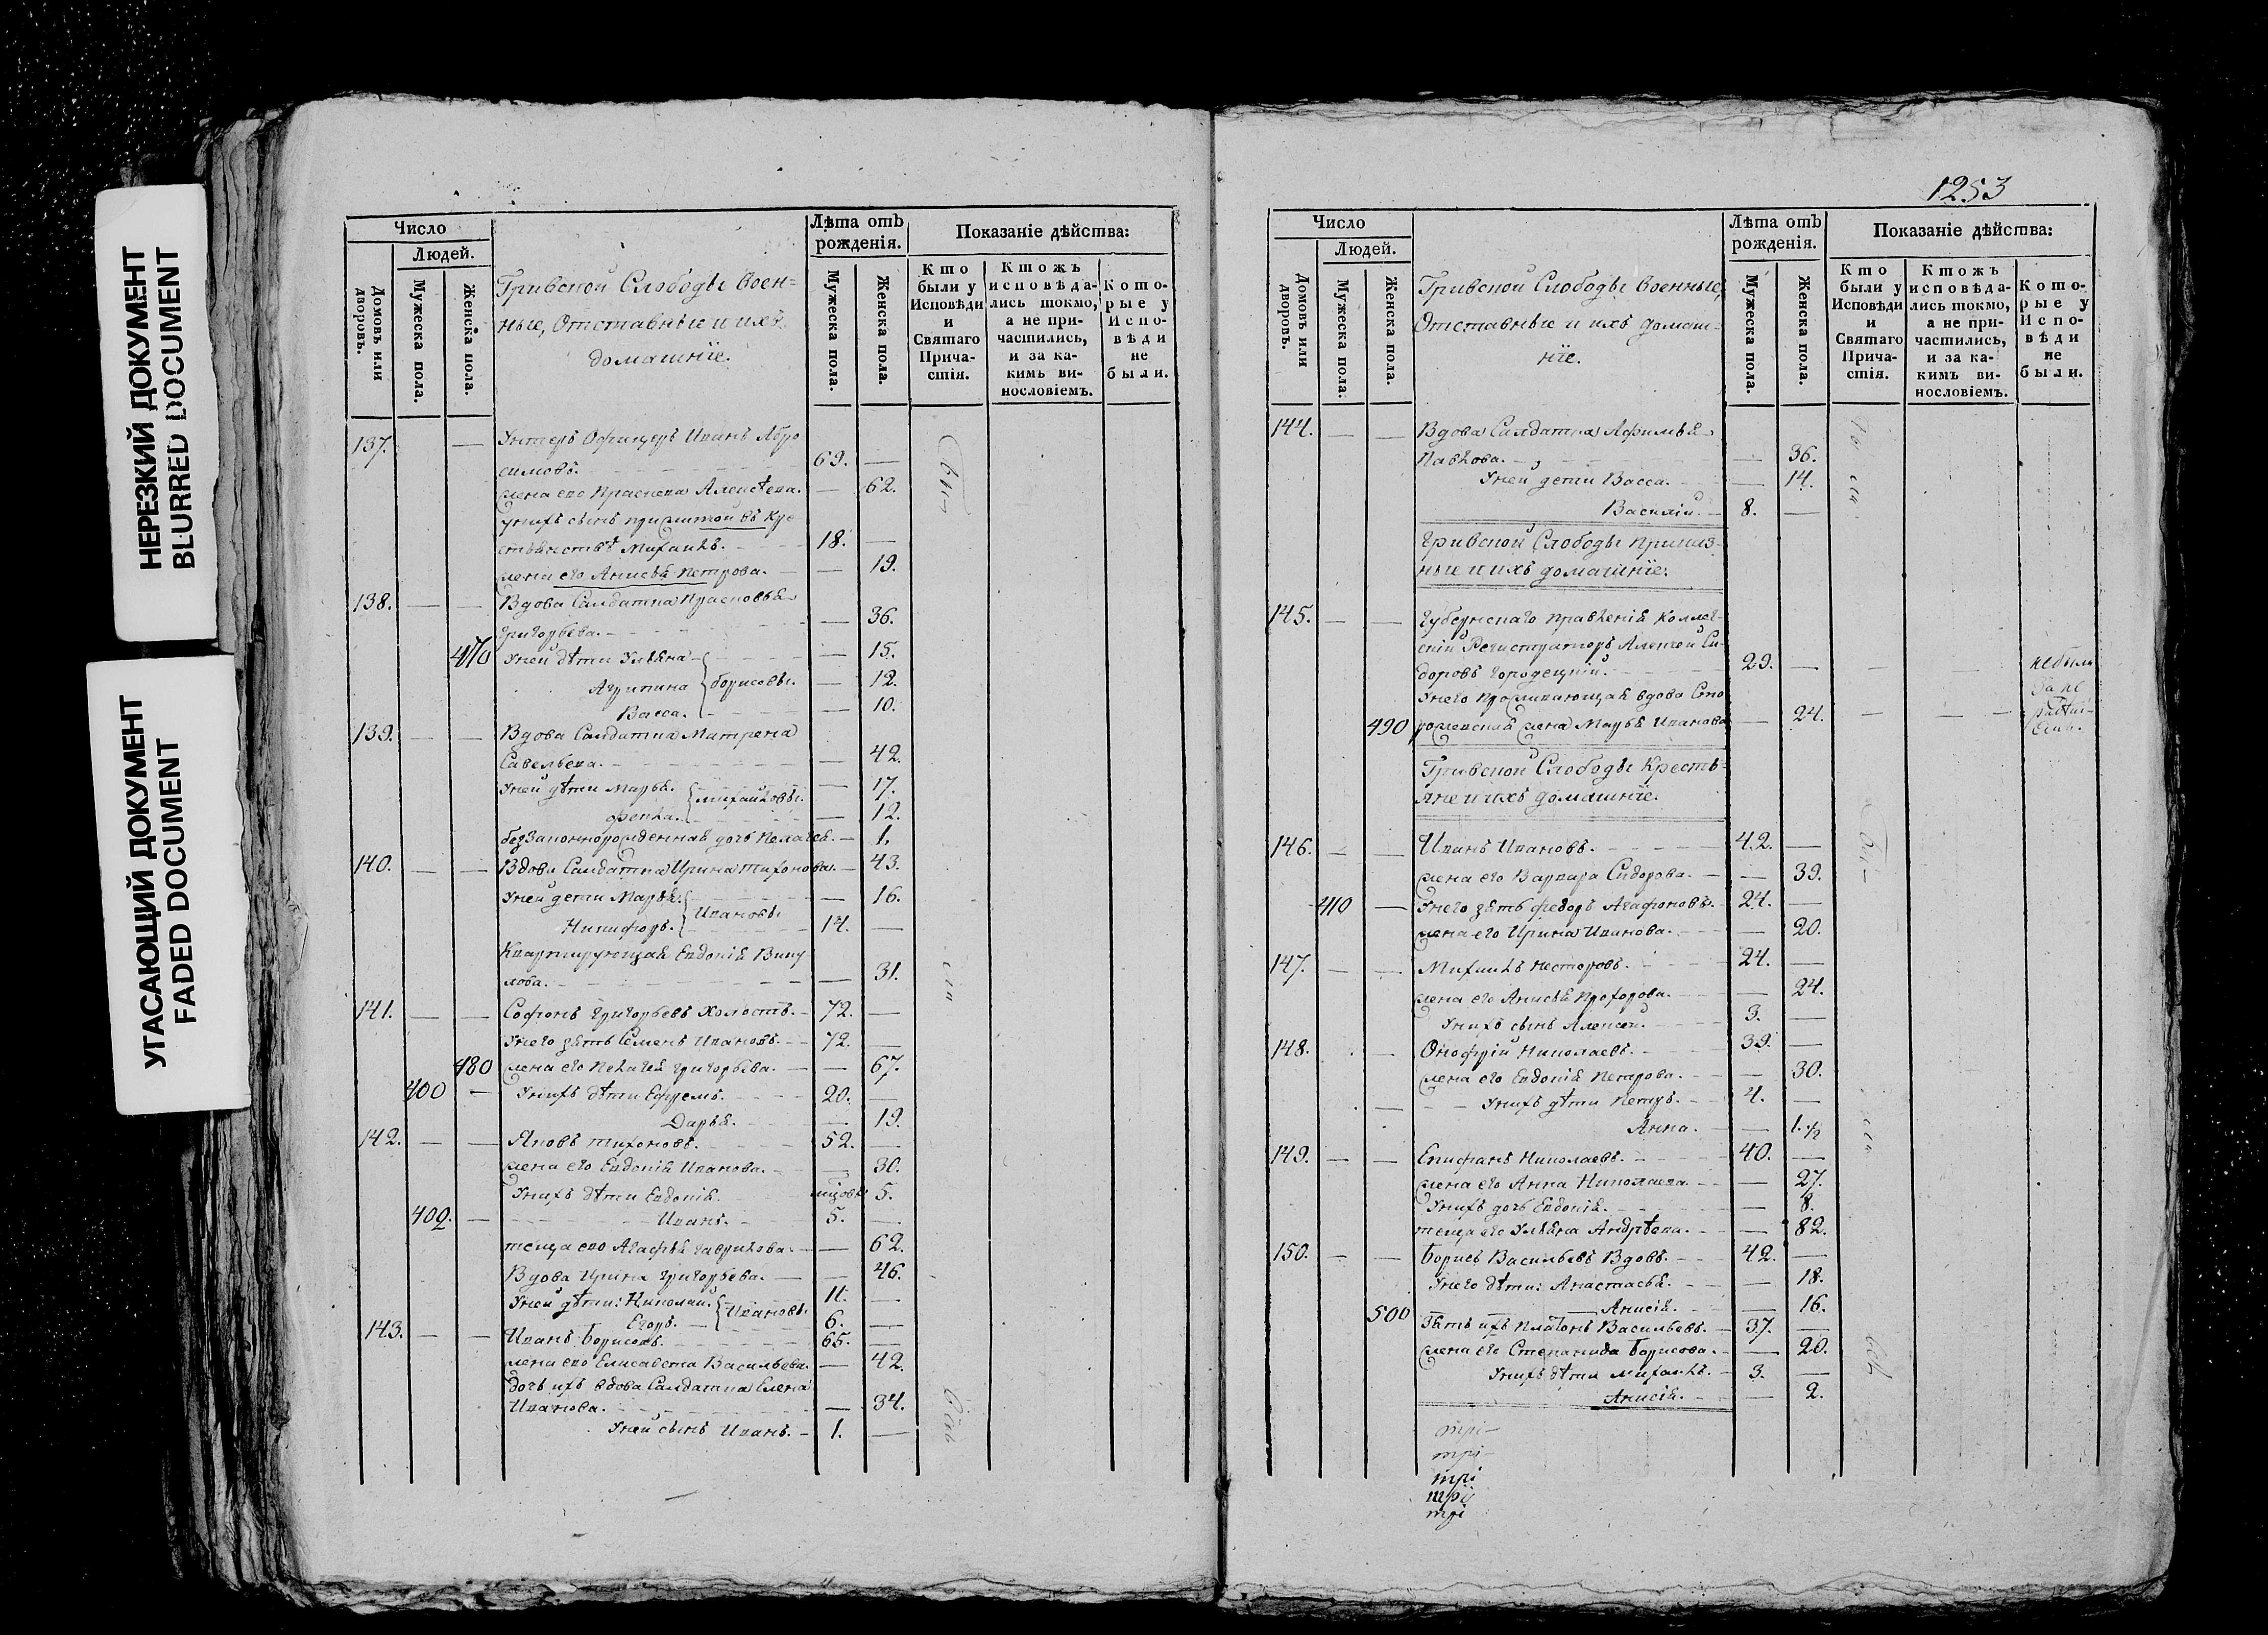 НЕРЕЗКИЙ ДОКУМЕНТ
BLURRED DOCUMENT
УГАСАЮЩИЙ ДОКУМЕНТ
FADED DOCUMENT
Число
Людей.
Домовъ или дворовъ.
Мужеска пола.
Женска пола.
Гривской Слободы Воен-
ные, Отставные и ихъ
домашніе.
Лѣта отъ
рожденія.
Мужеска пола.
Женска пола.
Показаніе дѣйства:
Кто были у Исповѣди и Святаго Прича-стія.
Ктожъ исповѣда-лись токмо, а не при-частились, и за ка-кимъ ви-нословіемъ.
Кото-рые у Испо-вѣди не были.
137. — Унтеръ Офицеръ Иванъ Абро
симовъ. 69. —
жена ево Прасковья Алексѣева. — 62.
у нихъ сынъ прижитой въ Кре
стьянствѣ Михаилъ. 18. —
жена его Анисья Петрова. — 19.
138. — — Вдова Салдатка Прасковья
Григорьева. — 36.
470 У ней дѣти Ульяна — 15.
Агрипина Борисовы. — 12.
Васса. — 10.
139. — — Вдова Салдатка Матрена
Савельева. — 42.
У ней дѣти Марья. Михайловы. — 17.
Фекла. — 12.
беззаконнорожденная дочь Пелагея. — 1.
140. — — Вдова Салдатка Ирина Тихонова. — 43.
У ней дети Марья. Ивановы — 16.
Никифоръ. 14. —
Квартирующая Евдокія Вику
лова. — 31.
141. — — Софонъ Григорьевъ Холостъ. 72. —
У него зять Семенъ Ивановъ. 72. —
480 жена его Пелагея Григорьева. — 67.
400 — У нихъ дѣти Ефремъ. 20. —
Дарья. — 19.
142. — — Яковъ Тихоновъ. 52. —
жена его Евдокія Иванова. — 30.
У нихъ дѣти Евдокія. 5.
402. — Иванъ. 5. —
теща ево Агафья Гаврилова. — 62.
Вдова Ирина Григорьева. — 46.
У ней дѣти: Николай. Ивановы. 11. —
Егоръ. 6. —
143. — — Иванъ Борисовъ. 65. —
жена ево Елисавета Васильева. — 42.
дочь ихъ вдова Салдатка Елена
Иванова. — 34.
У ней сынъ Иванъ. 1. —
1253
Число
Людей.
Домовъ или дворовъ.
Мужеска пола.
Женска пола.
Гривской Слободы Военные,
Отставные и ихъ домаш-
ніе.
Лѣта отъ
рожденія.
Мужеска пола.
Женска пола.
Показаніе дѣйства:
Кто были у Исповѣди и Святаго Прича-стія.
Ктожъ исповѣда-лись токмо, а не при-частились, и за ка-кимъ ви-нословіемъ.
Кото-рые у Испо-вѣди не были.
144. — — Вдова Салдатка Афимья
Павлова. — 36.
У ней дети Васса. — 14.
Василій. 8. —
Гривской Слободы Приказ-
ные и ихъ домашніе.
145. — — Губернскаго правленія Коллеж-
скій Регистраторъ Алексей Си-
доровъ Городецкій. 29. — — — не были
У него проживающая вдова Сто
490 рожевская жена Марья Иванова — 24. — —
Гривской Слободы Кресть-
яне и ихъ домашніе.
146. — — Иванъ Ивановъ. 42. —
жена его Варвара Сидорова. — 39.
410 — У него зять Федоръ Агафоновъ. 24. —
жена его Ирина Иванова. — 20.
147. — — Михаилъ Несторовъ. 24. —
жена его Анисья Прохорова. — 24.
У нихъ сынъ Алексей. 3. —
148. — Онофрій Николаевъ. 39. —
жена его Евдокія Петрова. — 30.
У нихъ дѣти Петръ. 4. —
Анна. — 1 1/2
149. — — Епифанъ Николаевъ. 40. —
жена его Анна Николаева. — 27.
У нихъ дочь Евдокія. — 8.
теща его Ульяна Андрѣева. — 82.
150. — — Борисъ Васильевъ Вдовъ. 42. —
У него дѣти: Анастасья. — 18.
500 Анисія. — 16.
Зять ихъ Платонъ Васильевъ. 37. —
жена его Степанида Борисова. — 20.
У нихъ дѣти Михаилъ. 3. —
Анисія. — 2.
трі
трі
трі
трі
трі